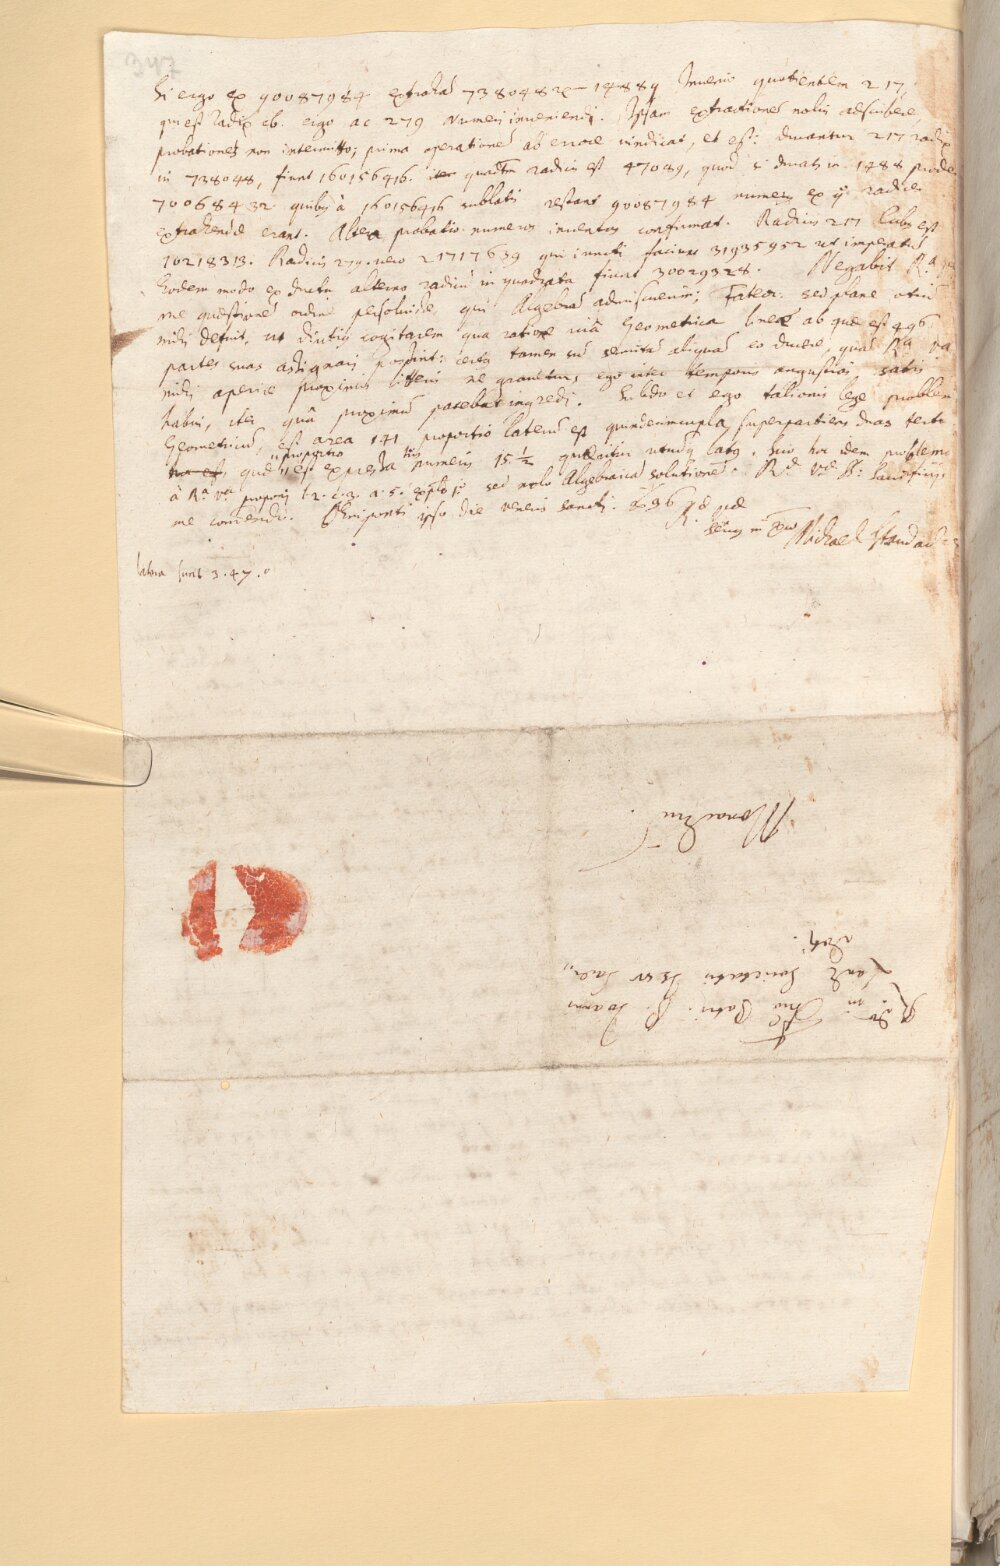 347
Si ergo ex 90087984 extrahã 738048 – 1488 Invenio quotientem 217,
qui est Radix cb. ergo ac 279 Numeri inveniendi. Ipsam extractionem nolui adscribere,
probationes non intermitto; prima operationẽ ab errore vindicat, et est: ducantur 217 radix
in 738048, fiunt 160156416. quadrtũ radicis est 47089, quod si ducatur in 1488 prodeũt
70068432 quibus à 160156416 sublatis restant 90087984 numerus ex quo radix
extrahenda erat. Altera probatio numeros inventos confirmat. Radicis 217 Cubus est
10218313. Radicis 279 vero 21717639 qui iuncti faciunt 31935952 ut imperatũ
Eodem modo ex ductu alterno radicũ in quadrata fiunt 30029328. Negabit Rª Vª
me quæstionẽ ordine persolvisse, qui Algebrã admiscuerim; Fateor. sed plane otiũ
mihi defuit, ut diutius cogitarem qua ratione viâ Geometrica lineæ ab quæ est 496
partes suas assignari possint: certa tamen sũ semitã aliquã eo ducere, quã Rª Vª
mihi aperire proximis litteris ne gravetur, ego inter temporis angustias satis
habui, iter quâ proximũ patebat ingredi. Subdo et ego talionis lege problema
Geometricũ, est area 141 proportio laterũ est quindecimcupla superpartiens duas tertias
quæ proportio est expressa his numeris 15 ½ quæritur utrumq latus. Scio hoc idem problema
à Rª Vª proponi l. 2. c. 3. a. 5. exẽplo 1º sed nolo Algebraicã solutionẽ. Rᵃᵉ Vᵃᵉ SS: Sacrificijs
me commendo. Œniponti ipso die veneris sancti. 636
Rᵃᵉ Vᵃᵉ
servus in Xpo Michael Staudacher
latera sunt 3. 47.
Rdo in
Xpo Patri. P. Joanni
Lanz Societatis Jesu Sacer„
doti.
Monachiũ